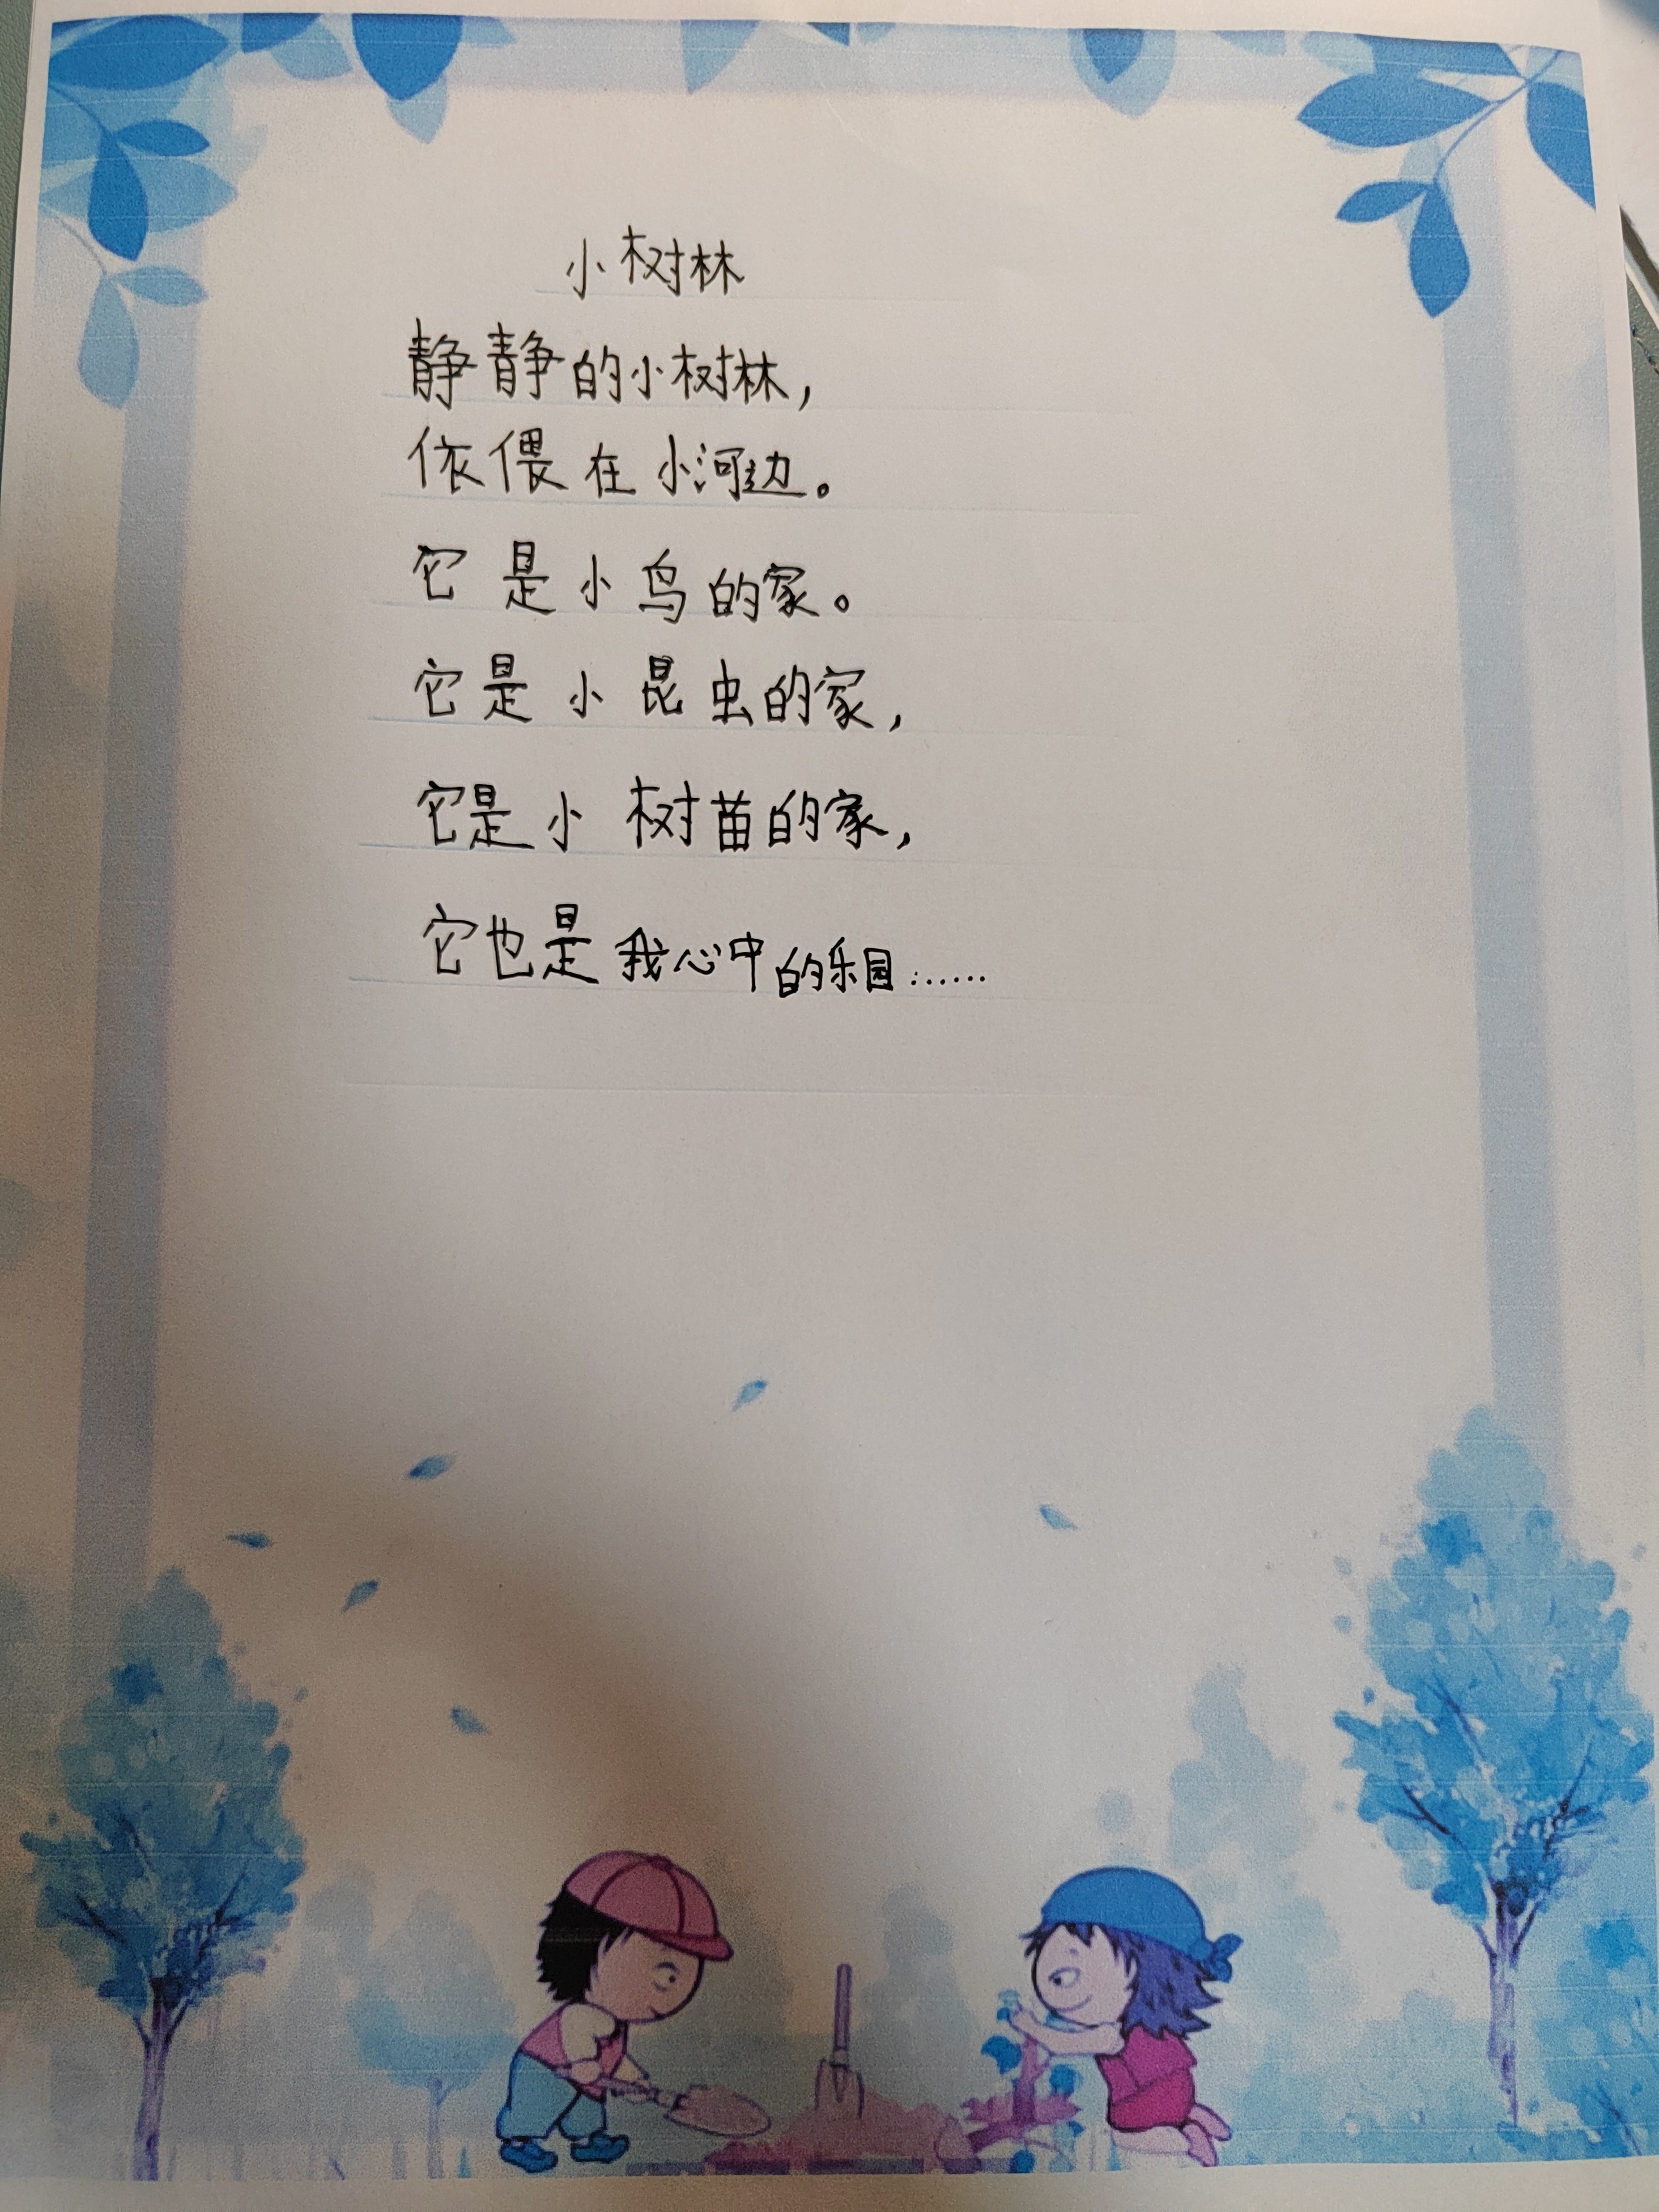 小树林
静静的小树林，
依偎在小河边。
它是小鸟的家。
它是小昆虫的家，
它是小树苗的家，
它也是我心中的乐园……